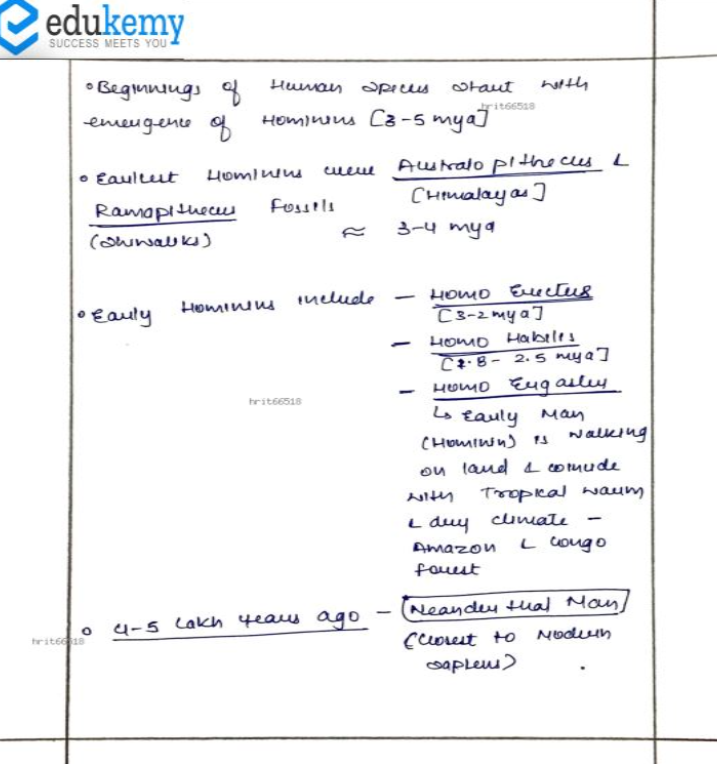 edukemy
SUCCESS MEETS YOU
• Beginnings of Human species start with
hrit66518
emergence of Hominins [3-5 mya]
• Earliest Hominins were Australopithecus &
[Himalayas]
Ramapithecus Fossils
(Shiwaliks) ≈ 3-4 mya
• Early Hominins include — Homo Erectus
[3-2 mya]
— Homo Habiles
[2.8 - 2.5 mya]
— Homo Ergaster
hrit66518
↳ Early Man
(Hominin) is walking
on land & coincide
with Tropical warm
& dry climate -
Amazon & Congo
forest
• 4-5 Lakh years ago - (Neanderthal Man)
hrit66518
(closest to Modern
sapiens)